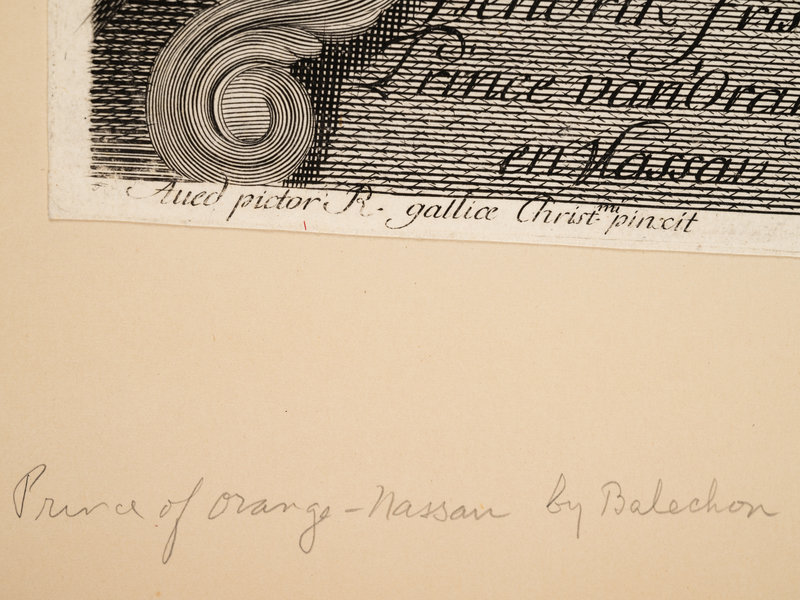 Hendrik fris
Prince van Oran
en Nassau
Aved pictor R. gallice Christ.mi pinxit
Prince of Orange-Nassau by Balechon